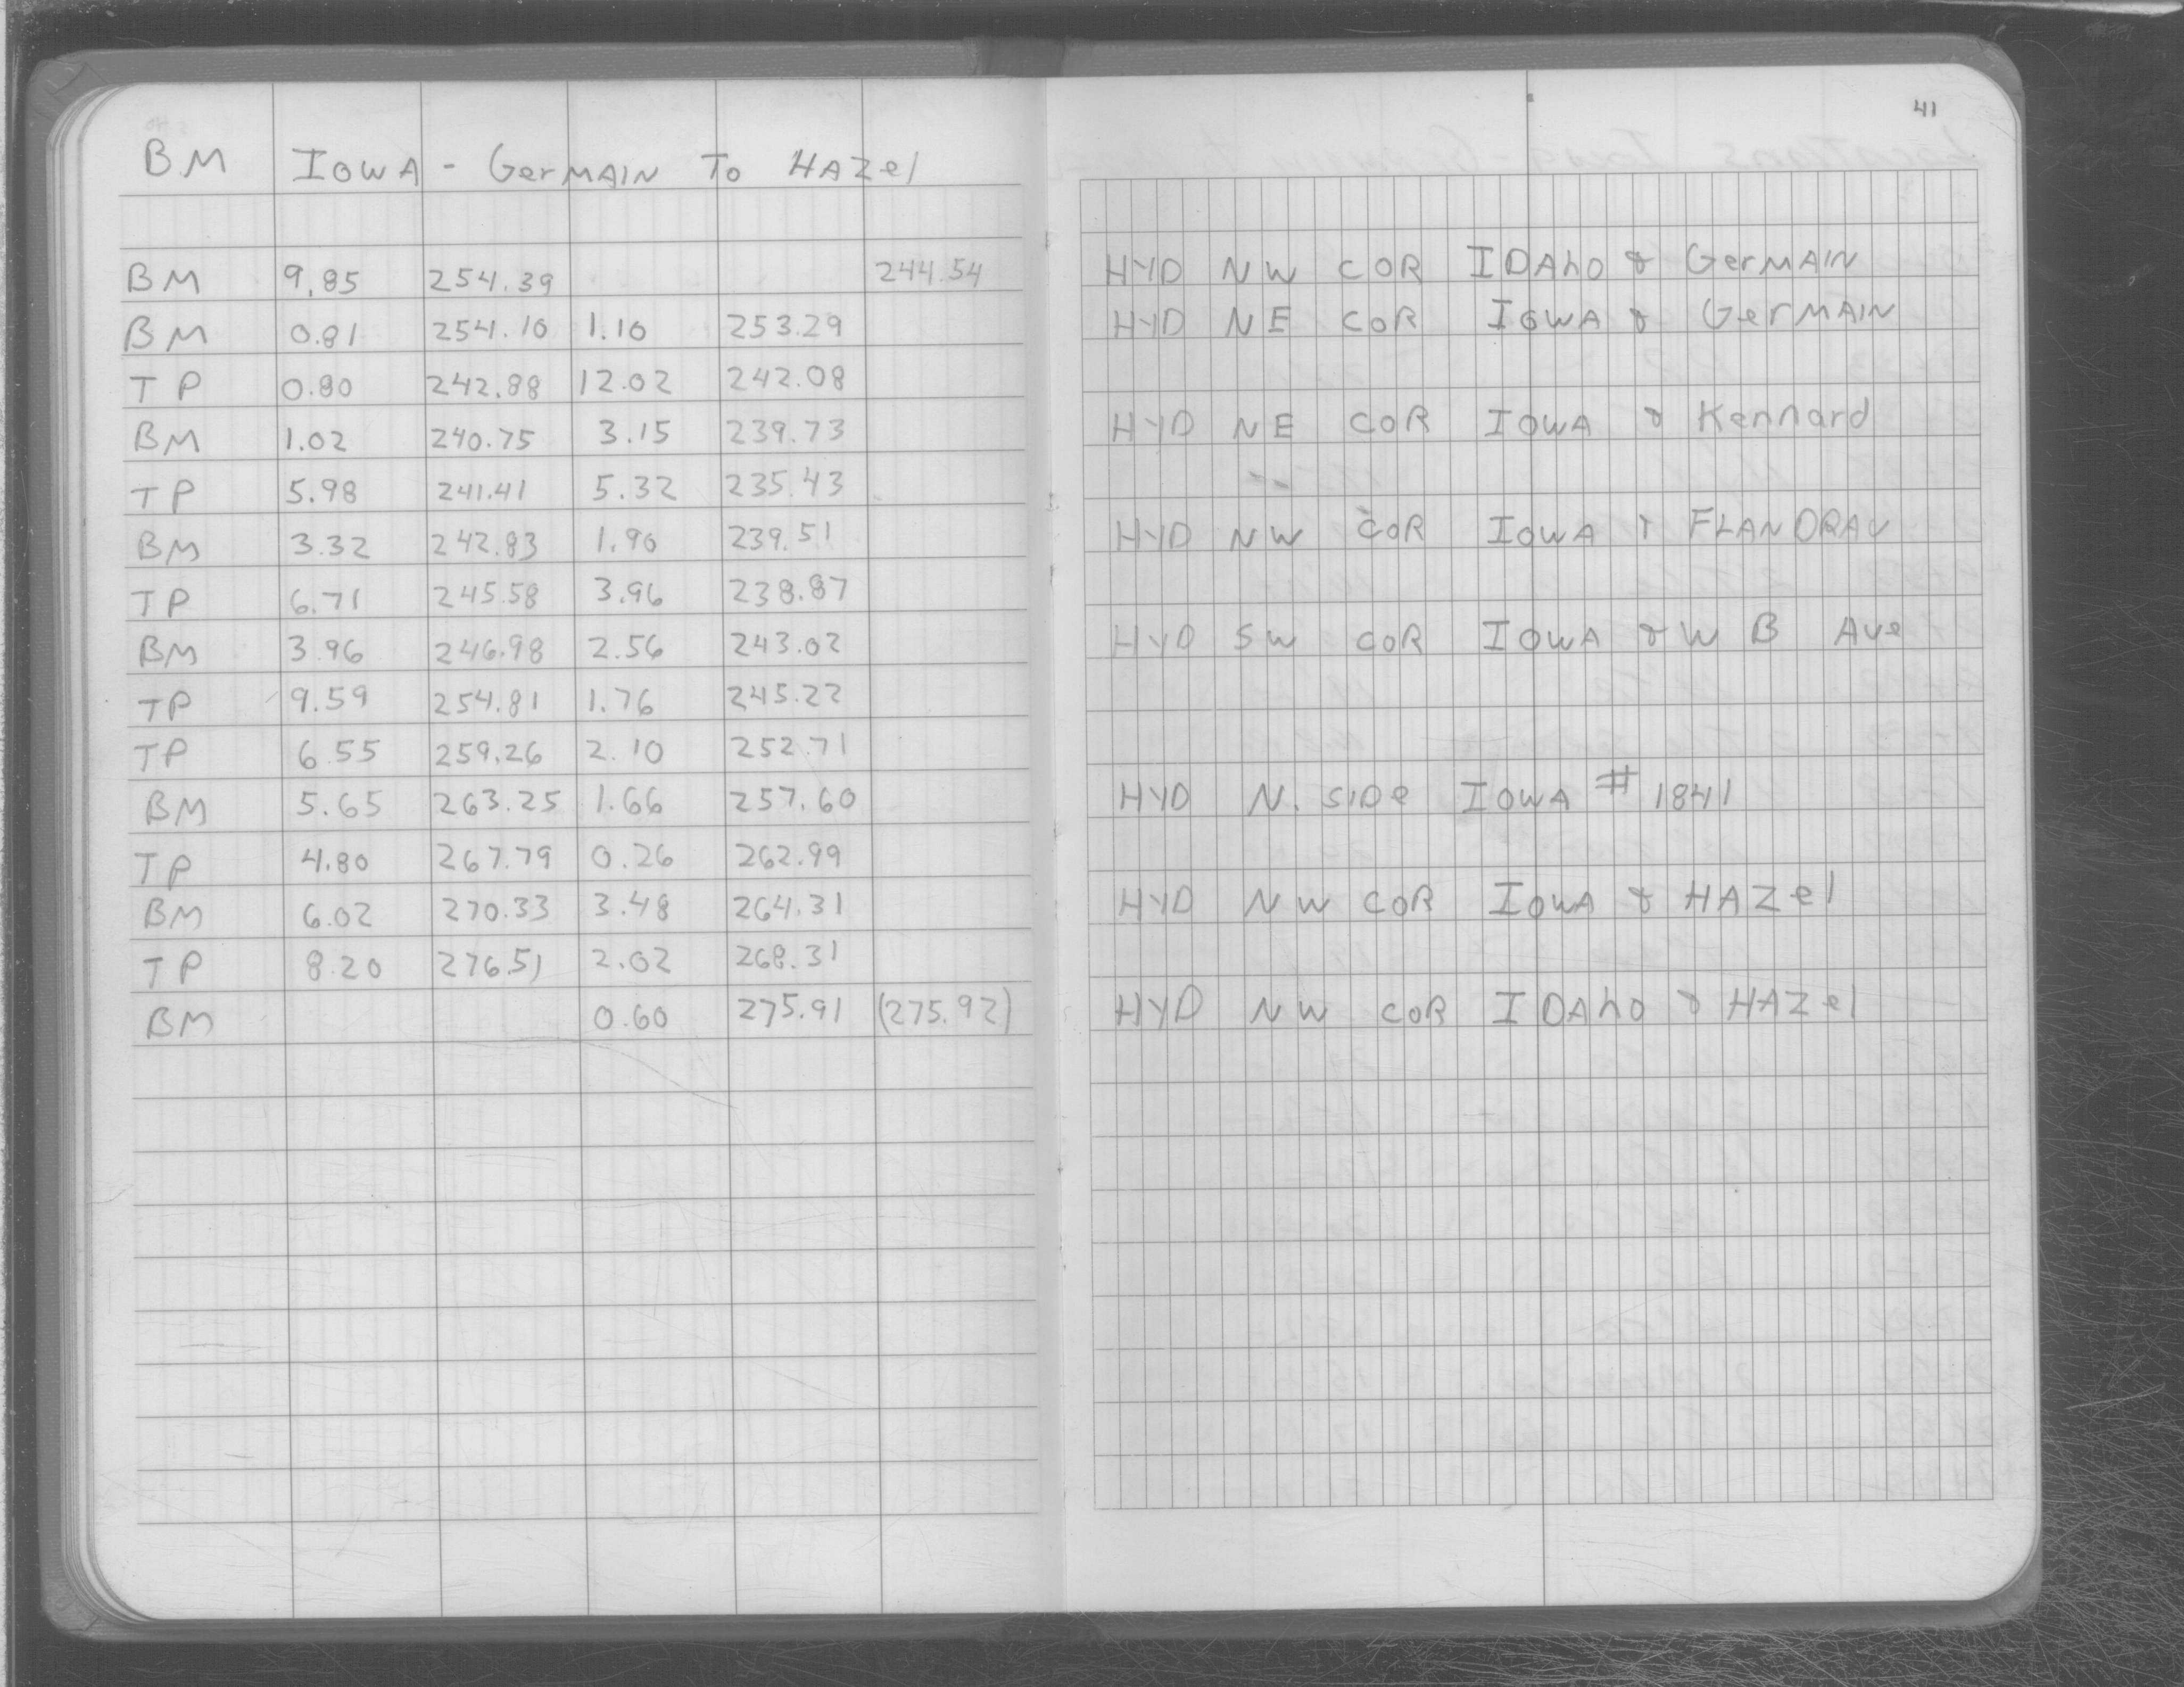 41
BM IOWA - GerMAIN To HAZel
BM 9.85 254.39 244.54 HYD NW COR IDAhO & GerMAIN
BM 0.81 254.10 1.10 253.29 HYD NE COR IOWA & GerMAIN
TP 0.80 242.88 12.02 242.08
BM 1.02 240.75 3.15 239.73 HYD NE COR IOWA & Kennard
TP 5.98 241.41 5.32 235.43
BM 3.32 242.83 1.90 239.51 HYD NW COR IOWA & FLANDRAU
TP 6.71 245.58 3.96 238.87
BM 3.96 246.98 2.56 243.02 HYD SW COR IOWA & W B Ave
TP 9.59 254.81 1.76 245.22
TP 6.55 259.26 2.10 252.71
BM 5.65 263.25 1.66 257.60 HYD N. SIDe IOWA # 1841
TP 4.80 267.79 0.26 262.99
BM 6.02 270.33 3.48 264.31 HYD NW COR IOWA & HAZel
TP 8.20 276.51 2.02 268.31
BM 0.60 275.91 (275.92) HYD NW COR IDAhO & HAZel